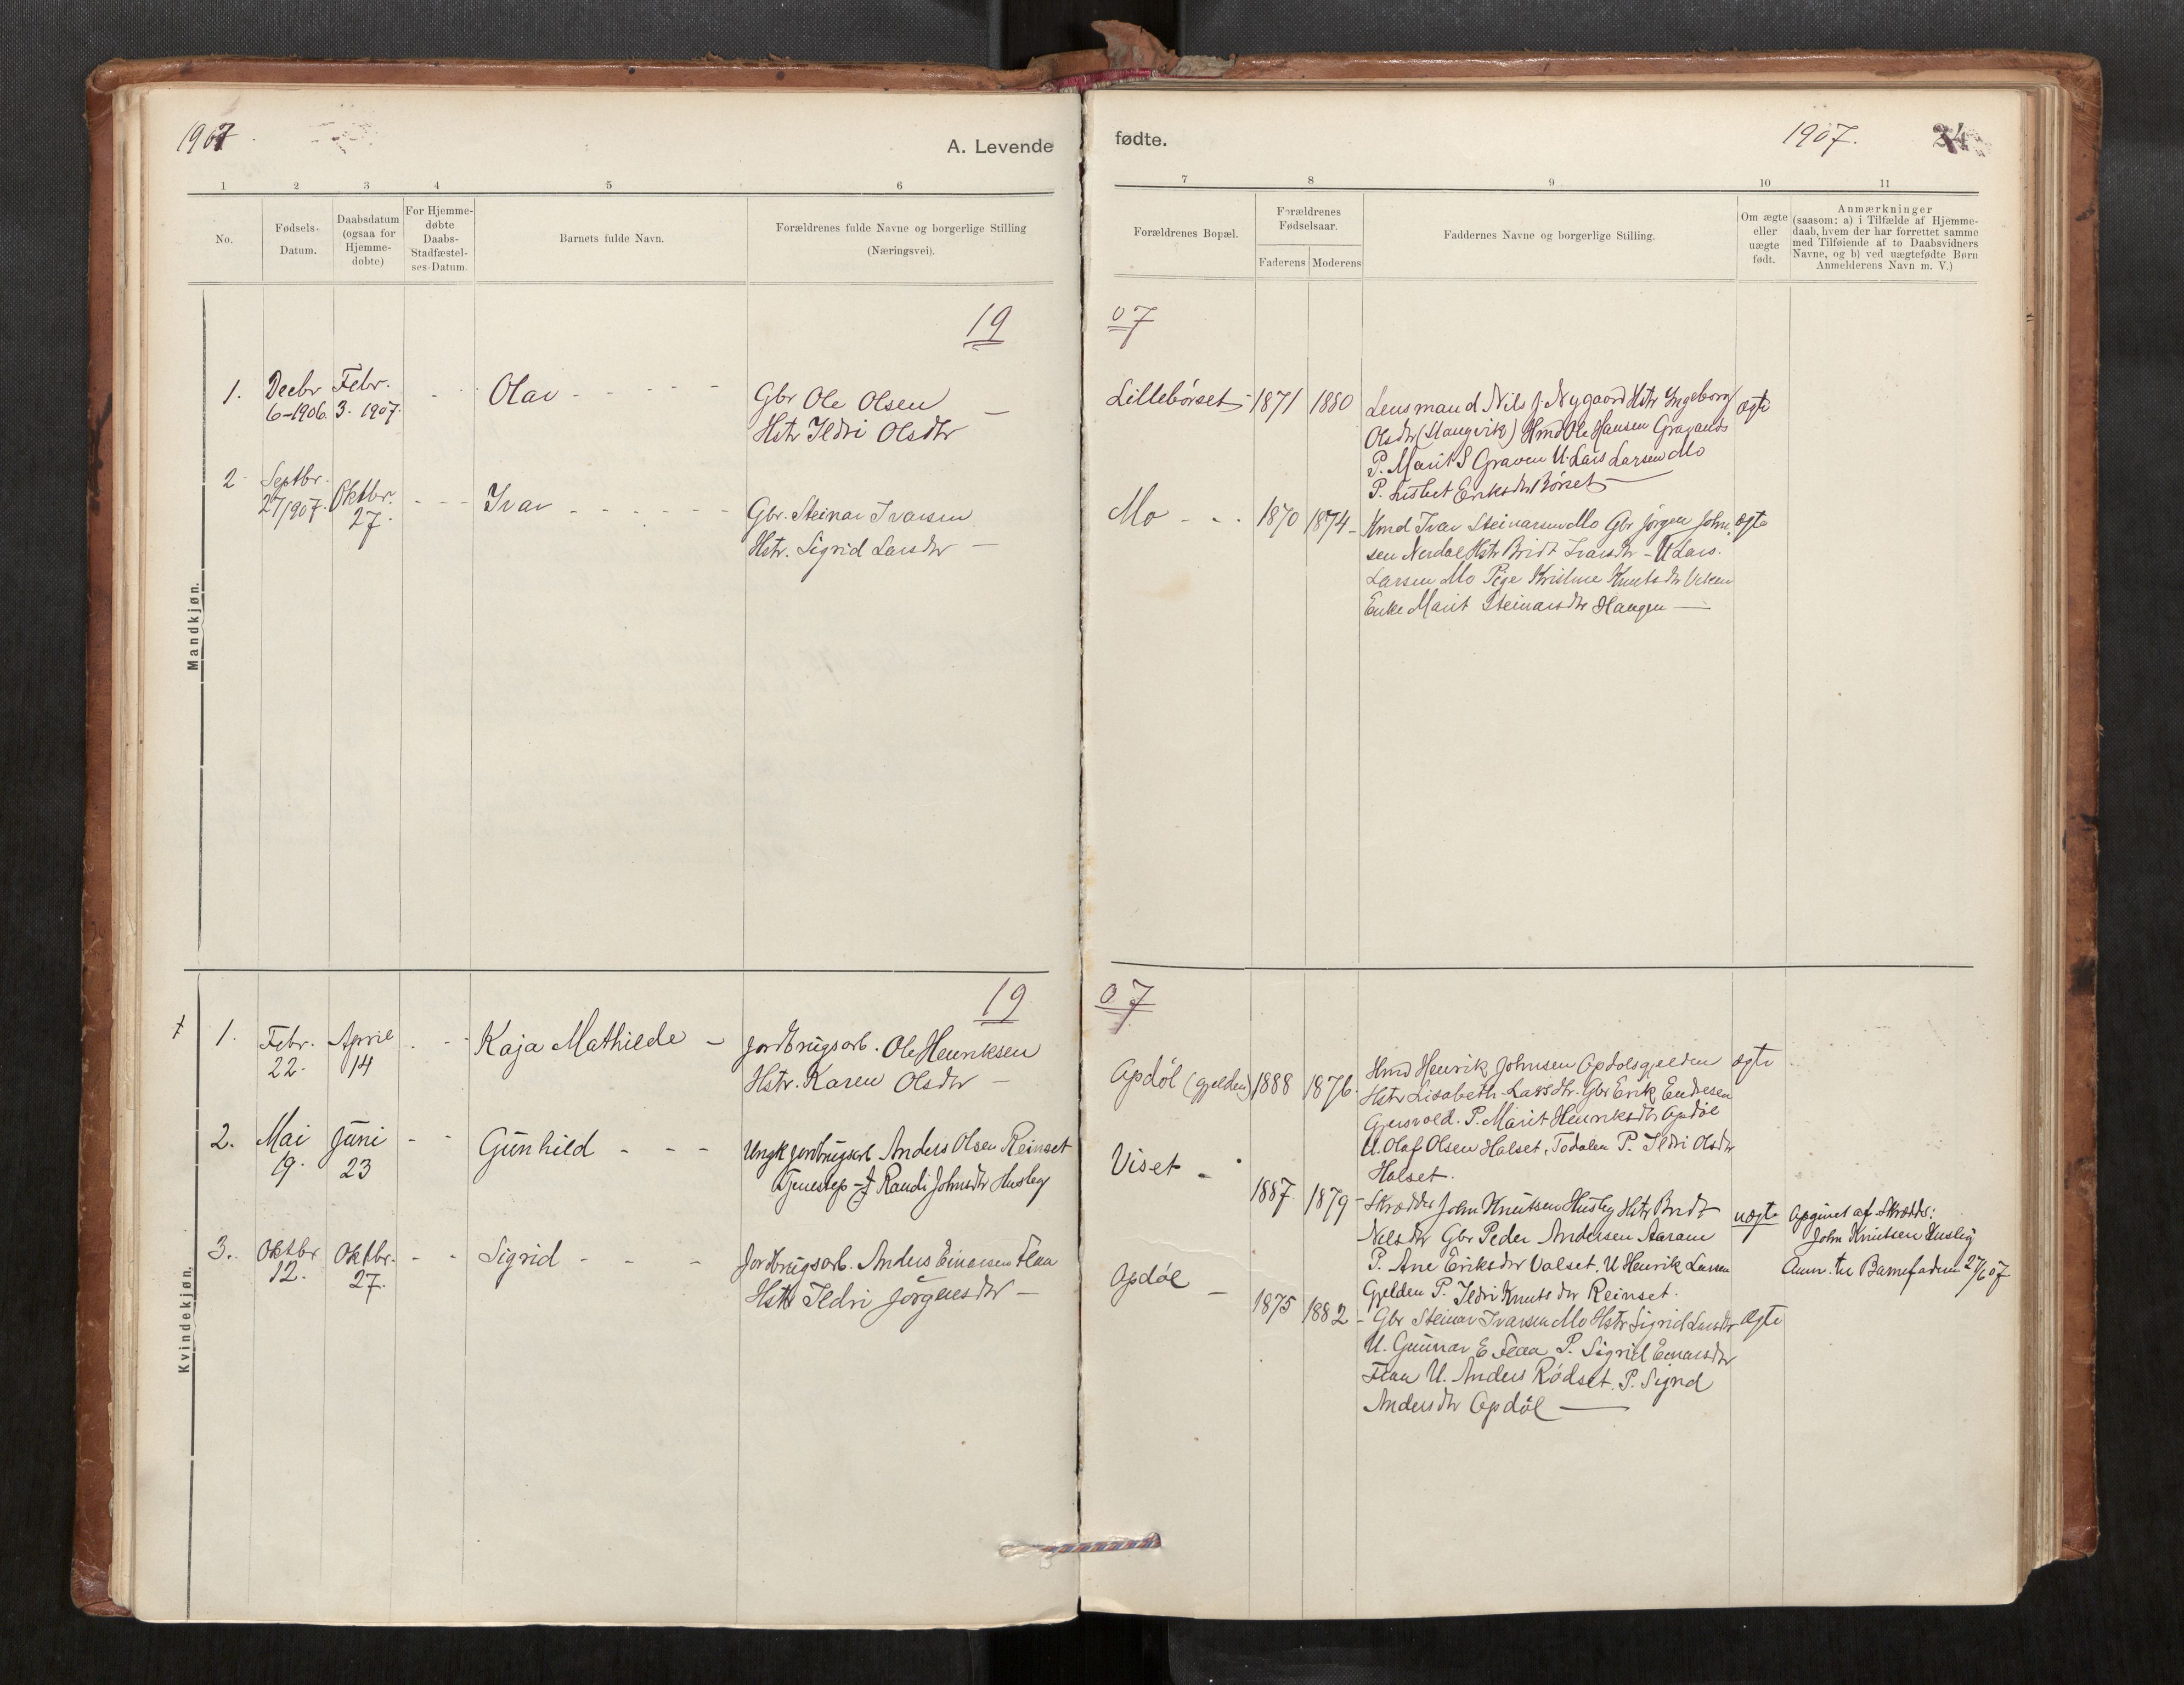 1907.
A. Levende
1 2 3 4 5 6
No.
Fødsels-
Datum.
Daabsdatum
(ogsaa for
Hjemme-
døbte)
For Hjemme-
døbte
Daabs-
Stadfæstel-
ses-Datum.
Barnets fulde Navn.
Forældrenes fulde Navne og borgerlige Stilling
(Næringsvei).
Mandkjøn.
19
1. Decbr Febr. - - Olav - - - -
6-1906. 3. 1907.
Gbr Ole Olsen
Hstr Ildri Olsdtr —
2 Septbr. Oktbr. - - - Ivar - - - - - -
27/907. 27.
Gbr. Steinar Ivarsen
Hstr. Sigrid Larsdtr —
Kvindekjøn.
19
1. Febr. April - - Kaja Mathilde -
22. 14
Jordbrugsarb. Ole Henriksen
Hstr. Karen Olsdtr —
2. Mai Juni - - Gunhild - - -
19. 23
Ungk jordbrugsarb Anders Olsen Reinset
Randi Johnsdtr Husby
3. Oktbr Oktbr. - - Sigrid - - -
12. 27.
Jordbrugsarb. Anders Einarsen Flaa
Hstr Ildri Jørgensdtr —
fødte.
1907.
7 8 9 10 11
Forældrenes Bopæl.
Forældrenes
Fødselsaar.
Faderens Moderens
Faddernes Navne og borgerlige Stilling.
Om ægte
eller
uægte
født.
Anmærkninger
(saasom: a) i Tilfælde af Hjemme-
daab, hvem der har forrettet samme
med Tilføiende af to Daabsvidners
Navne, og b) ved uægtefødte Børn
Anmelderens Navn m. V.)
07
Lillebørset - 1871 1880
Lensmand Nils J. Nygaard Hstr Ingeborg
Olsdtr (Stangvik) Kmd Ole Hansen
P. Marit S Graven U. Lars Larsen Mo
P. Lisbet Eriksdtr Børset —
ægte
Mo - - - 1870 1874 -
Kmd Ivar Steinarsen Mo Gbr Jørgen John-
sen Nerdal Hstr Brit Ivarsdtr - U Lars
Larsen Mo Pige Kristine Knutsdtr
Enke Marit Steinarsdtr Haugen —
ægte
07
Opdøl (gjelden) 1888 1876.
Kmd Henrik Johnsen Opdølsgjelden
Hstr Lisabeth Larsdtr. Gbr Erik Endresen
Gjersvold. P. Marit Henriksdtr Opdøl
U. Olaf Olsen Halset, Todalen P. Ildri Olsdtr
Halset.
ægte
Viset - 1887. 1879 -
Skrædder John Knutsen Husby Hstr Brit
Nelsdtr Gbr Peder Andersen Aaram
P. Ane Eriksdtr Valset. U Henrik Larsen
Gjelden P. Ildri Knutsdtr Reinset.
uægte
Opgivet af Skrædder:
John Knutsen Husby
Anm. til Barnefaderen 27/6 07
Opdøl — 1875 1882
- Gbr Steinar Ivarsen Mo Hstr Sigrid Larsdtr
U. Gunnar E Flaa P. Sigrid Einarsdtr
Flaa U. Anders Rødset. P. Sigrid
Andersdtr Opdøl —
Ægte